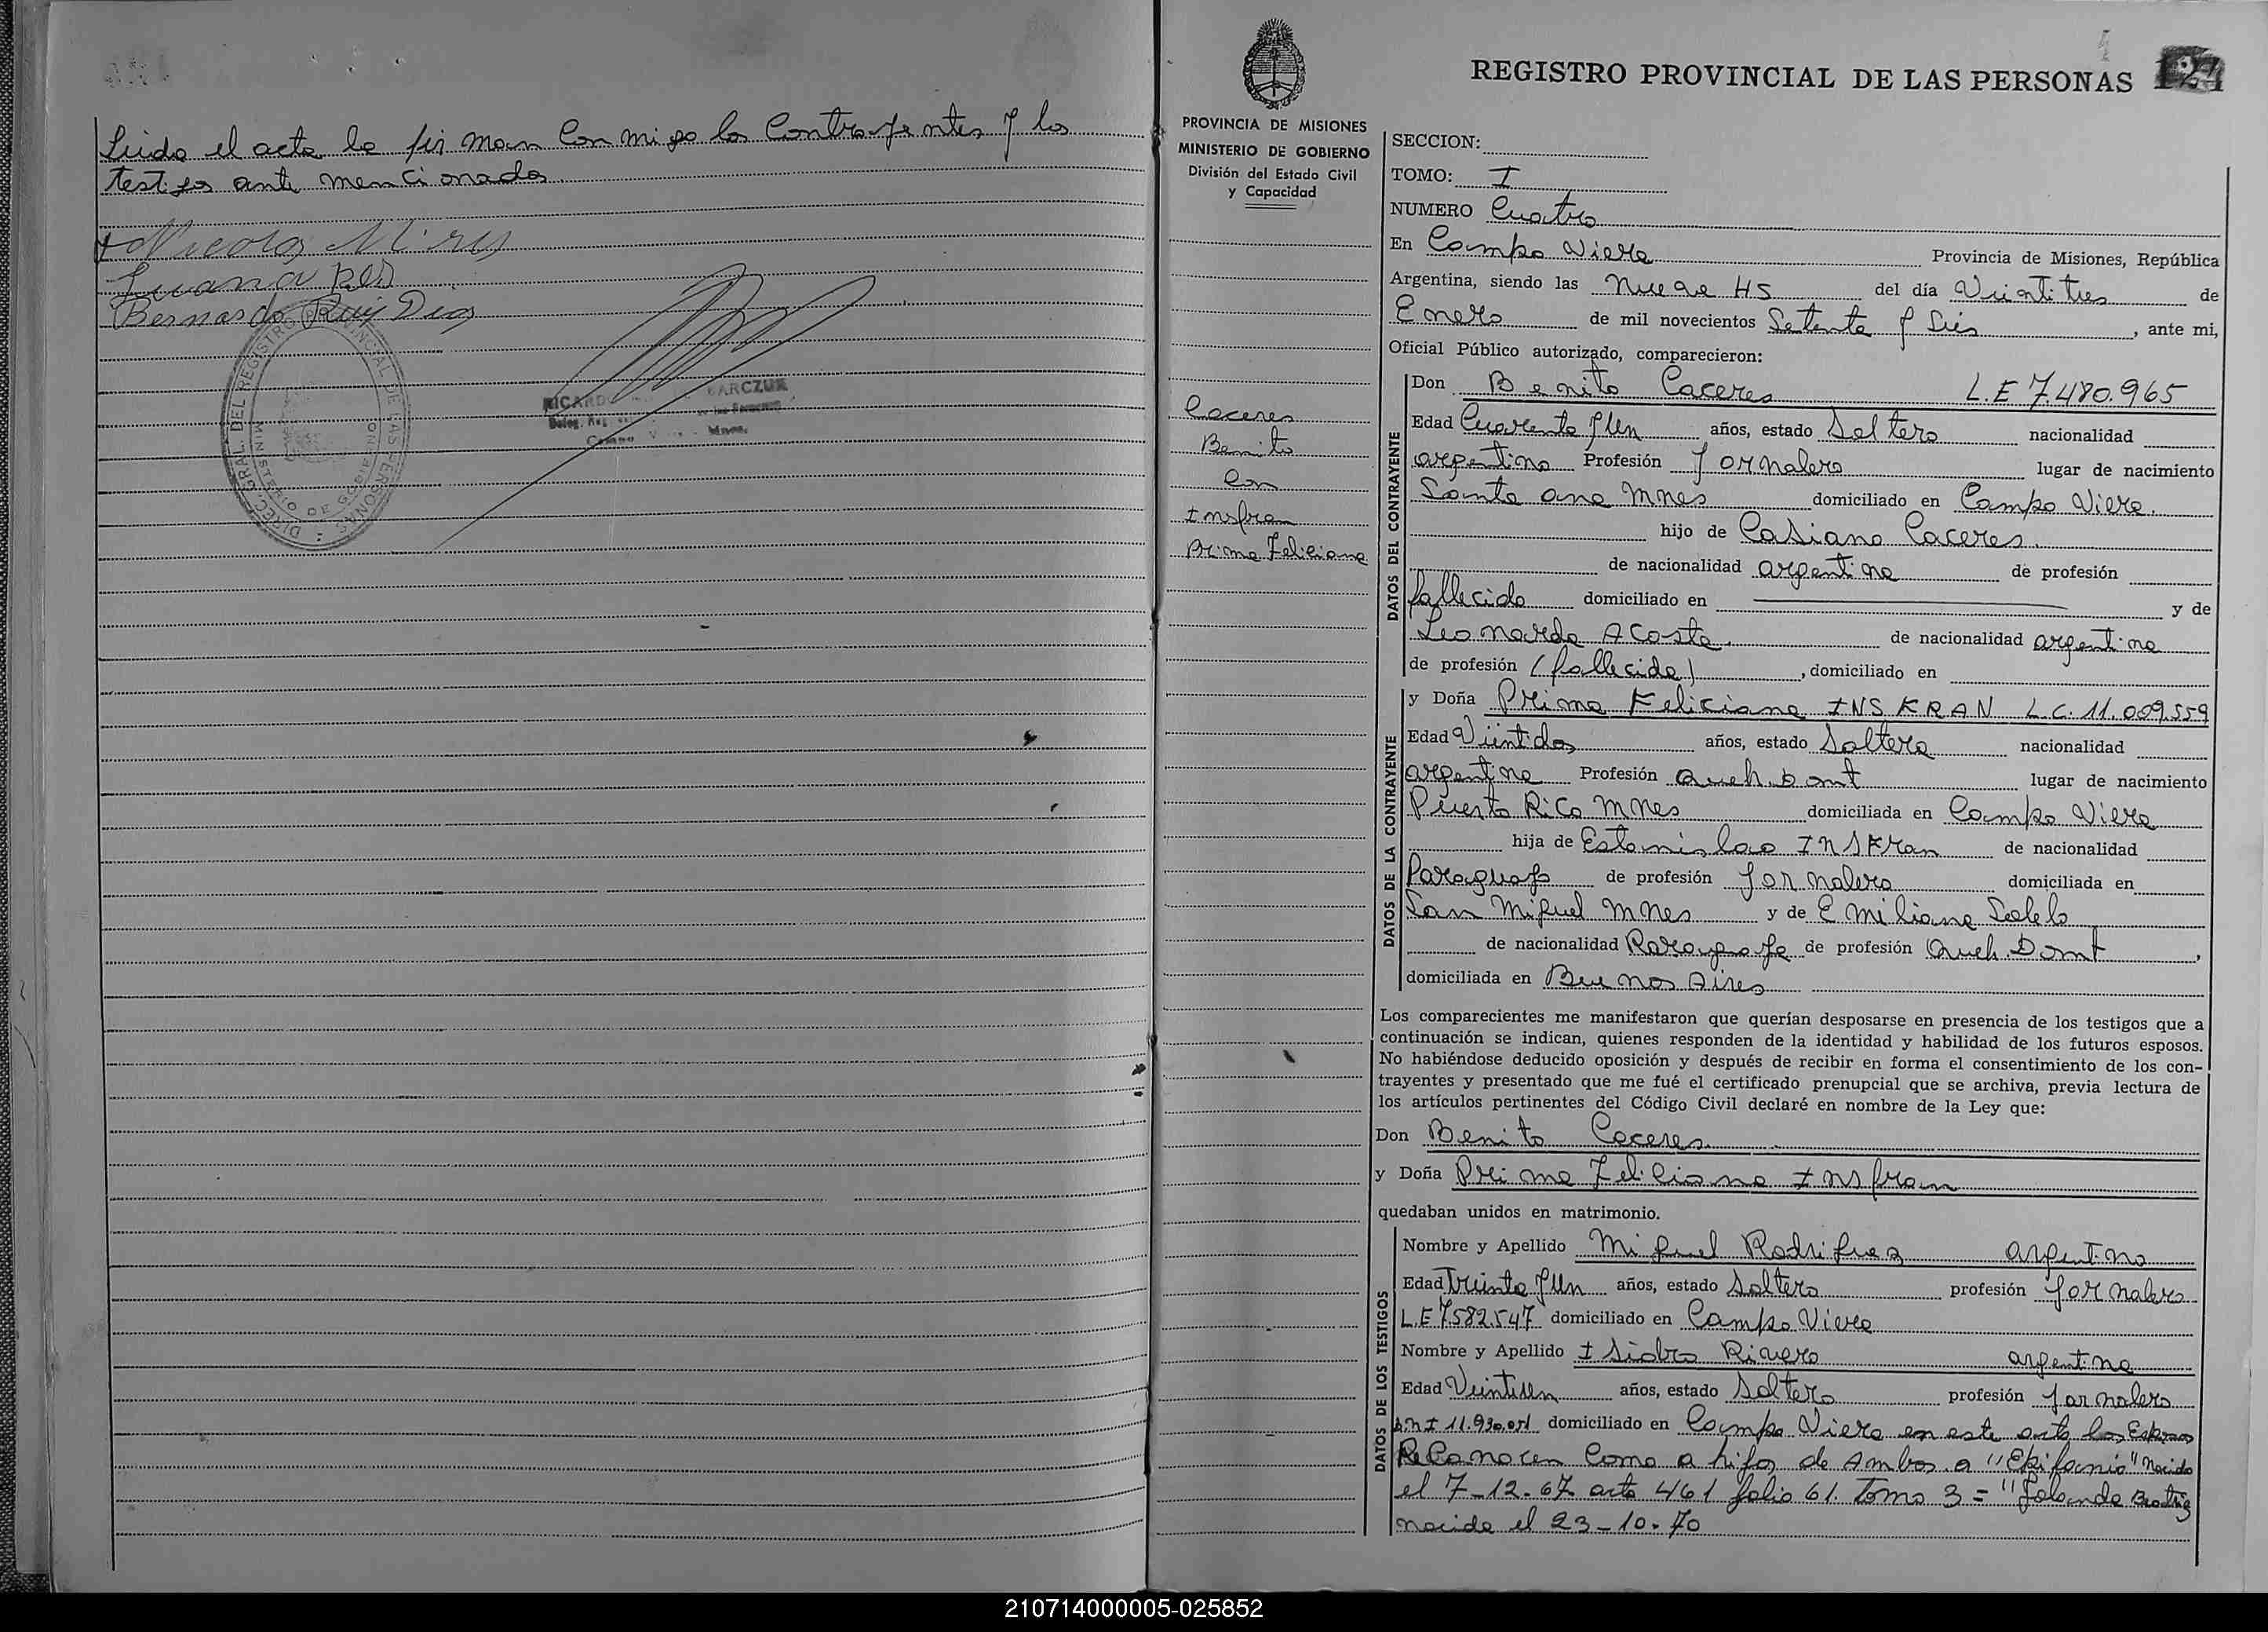 Leido el acta la firman conmigo los Contrayentes y los
testigos ante mencionados
Juana
Bernardo Ruiz Dias
DIREC. GRAL. DEL REGISTRO PROVINCIAL DE LAS PERSONAS
MINISTERIO DE GOBIERNO
RICARDO
PROVINCIA DE MISIONES
MINISTERIO DE GOBIERNO
División del Estado Civil
y Capacidad
Caceres
Benito
Con
Insfran
Prima Feliciana
REGISTRO PROVINCIAL DE LAS PERSONAS
SECCION:
TOMO: I
NUMERO Cuatro
En Campo Viera Provincia de Misiones, República
Argentina, siendo las Nueve HS del día Veintitres de
Enero de mil novecientos Setenta y Seis, ante mi,
Oficial Público autorizado, comparecieron:
DATOS DEL CONTRAYENTE
Don Benito Caceres L.E 7.480.965
Edad Cuarenta y Un años, estado Soltero nacionalidad
argentino Profesión Jornalero lugar de nacimiento
Santa ana Mnes domiciliado en Campo Viera.
hijo de Casiano Caceres.
de nacionalidad argentina de profesión
fallecido domiciliado en y de
Leonarda Acosta. de nacionalidad argentina
de profesión (fallecida), domiciliado en
DATOS DE LA CONTRAYENTE
y Doña Prima Feliciana INSFRAN L.C. 11.009.559
Edad Veintidos años, estado Soltera nacionalidad
argentina Profesión Queh. Domt lugar de nacimiento
Puerto Rico Mnes domiciliada en Campo Viera
hija de Estanislao Insfran de nacionalidad
Paraguayo de profesión Jornalero domiciliada en
San Miguel Mnes y de Emiliana
de nacionalidad Paraguaya de profesión Queh. Domt,
domiciliada en Buenos Aires
Los comparecientes me manifestaron que querían desposarse en presencia de los testigos que a
continuación se indican, quienes responden de la identidad y habilidad de los futuros esposos.
No habiéndose deducido oposición y después de recibir en forma el consentimiento de los con-
trayentes y presentado que me fué el certificado prenupcial que se archiva, previa lectura de
los artículos pertinentes del Código Civil declaré en nombre de la Ley que:
Don Benito Caceres.
y Doña Prima Feliciana Insfran
quedaban unidos en matrimonio.
DATOS DE LOS TESTIGOS
Nombre y Apellido Miguel Rodriguez argentino
Edad Treinta y Un años, estado Soltero profesión Jornalero
L.E 7.582.547 domiciliado en Campo Viera
Nombre y Apellido Isidro Rivero argentino
Edad Veintiun años, estado Soltero profesión Jornalero
D.N.I 11.930.051 domiciliado en Campo Viera en este acto los Esposos
Reconocen Como a hijos de Ambos a "Epifanio" Nacido
el 7-12-67 acta 461 folio 61 Tomo 3 = "Yolanda Beatriz
nacida el 23-10-70
210714000005-025852